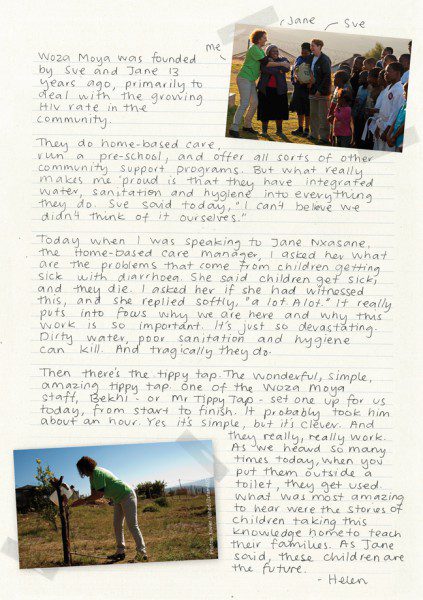 Jane Sue
me
Woza Moya was founded
by Sue and Jane 13
years ago, primarily to
deal with the growing
HIV rate in the
community.
They do home-based care,
run a pre-school, and offer all sorts of other
community support programs. But what really
makes me proud is that they have integrated
water, sanitation and hygiene into everything
they do. Sue said today, "I can't believe we
didn't think of it ourselves."
Today when I was speaking to Jane Nxasane,
the home-based care manager, I asked her what
are the problems that come from children getting
sick with diarrhoea. She said children get sick,
and they die. I asked her if she had witnessed
this, and she replied softly, "a lot. A lot." It really
puts into focus why we are here and why this
work is so important. It's just so devastating.
Dirty water, poor sanitation and hygiene
can kill. And tragically they do.
Then there's the tippy tap. The wonderful, simple,
amazing tippy tap. One of the Woza Moya
staff, Bekhi - or Mr Tippy Tap - set one up for us
today, from start to finish. It probably took him
about an hour. Yes it's simple, but it's clever. And
they really, really work.
As we heard so many
times today, when you
put them outside a
toilet, they get used.
What was most amazing
to hear were the stories of
children taking this
knowledge home to teach
their families. As Jane
said, these children are
the future.
- Helen